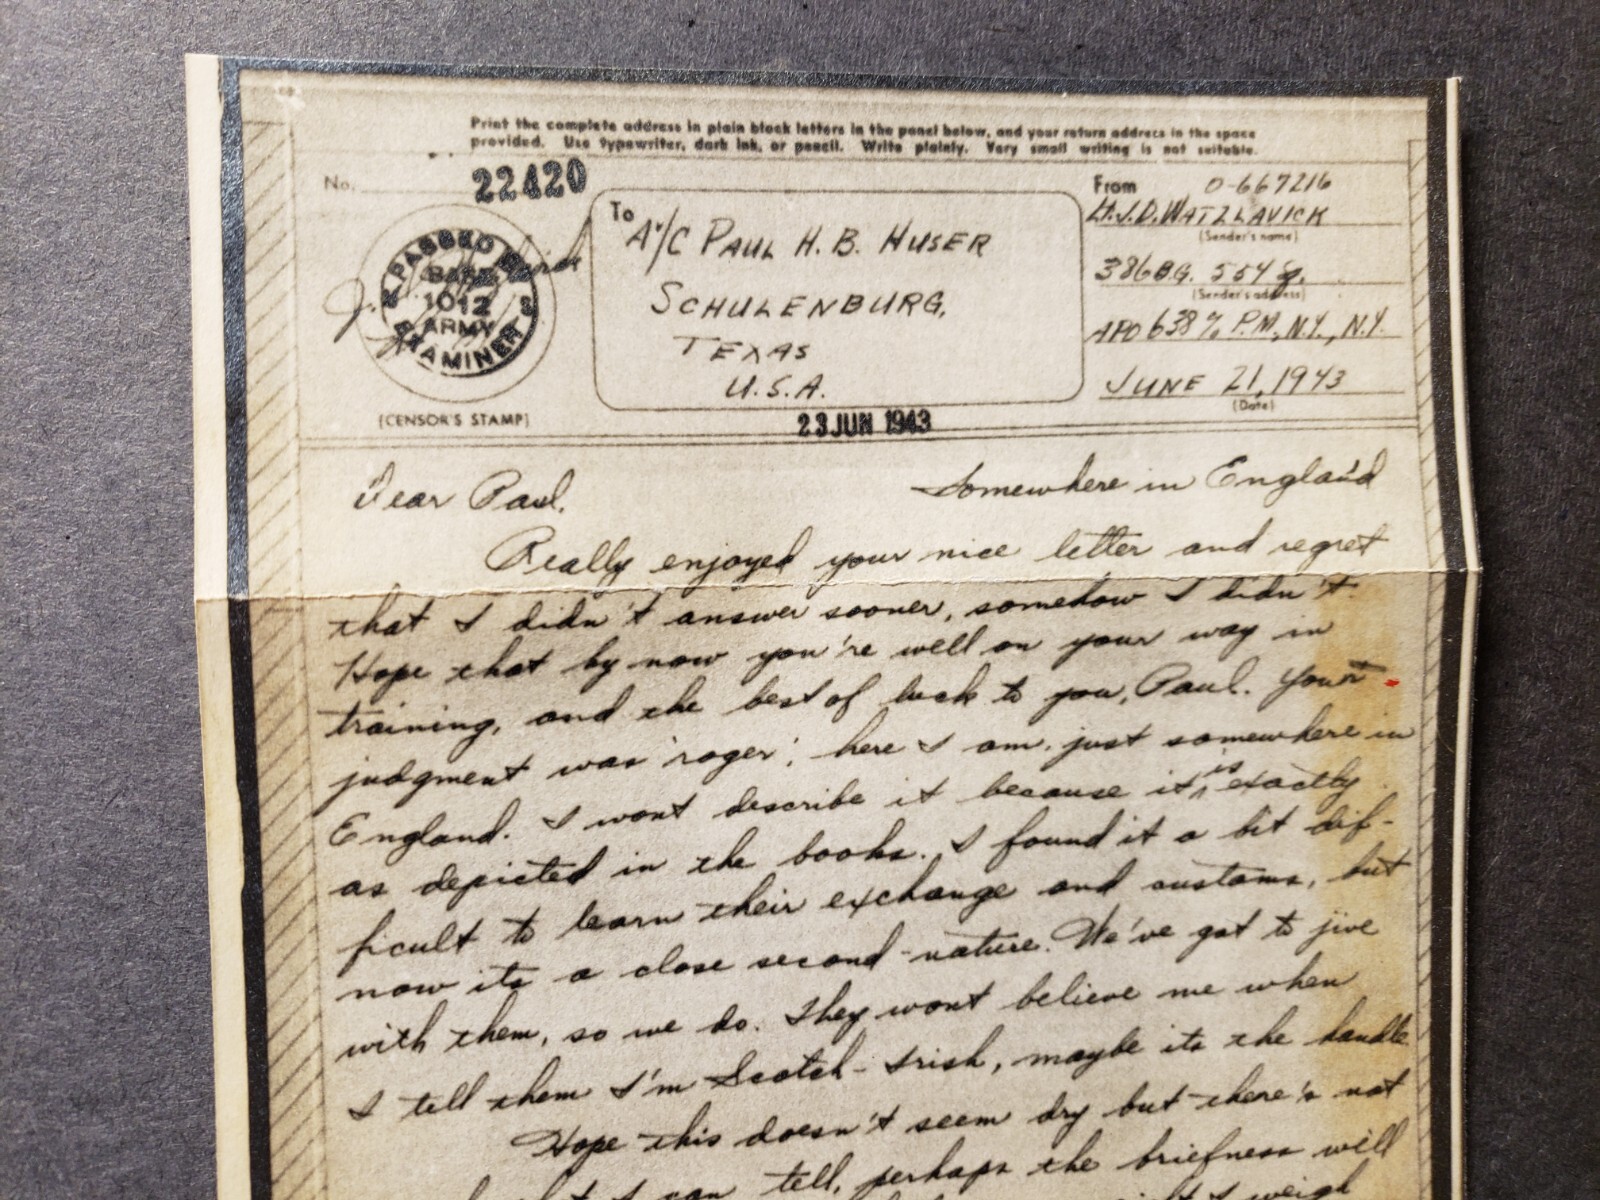 Print the complete address in plain block letters in the panel below, and your return address in the space
provided. Use typewriter, dark ink, or pencil. Write plainly. Very small writing is not suitable.
No.
22420
PASSED BY
BASE
1012
ARMY
EXAMINER
(CENSOR'S STAMP)
To
A/C PAUL H. B. HUSER
SCHULENBURG,
TEXAS
U.S.A.
23 JUN 1943
From O-667216
Lt. J.D. WATZLAVICK
(Sender's name)
386 B.G. 554 Sq.
(Sender's address)
APO 638 % P.M., N.Y., N.Y.
JUNE 21, 1943
(Date)
Somewhere in England
Dear Paul,
Really enjoyed your nice letter and regret
that I didn't answer sooner, somehow I didn't.
Hope that by now you're well on your way in
training, and the best of luck to you, Paul. Your
judgment was 'roger', here I am, just somewhere in
England. I wont describe it because it is exactly
as depicted in the books. I found it a bit dif-
ficult to learn their exchange and customs, but
now its a close second-nature. We've got to jive
with them, so we do. They wont believe me when
I tell them I'm Scotch-Irish, maybe its the handle
Hope this doesn't seem dry but there's not
I can tell, perhaps the briefness will
I weigh